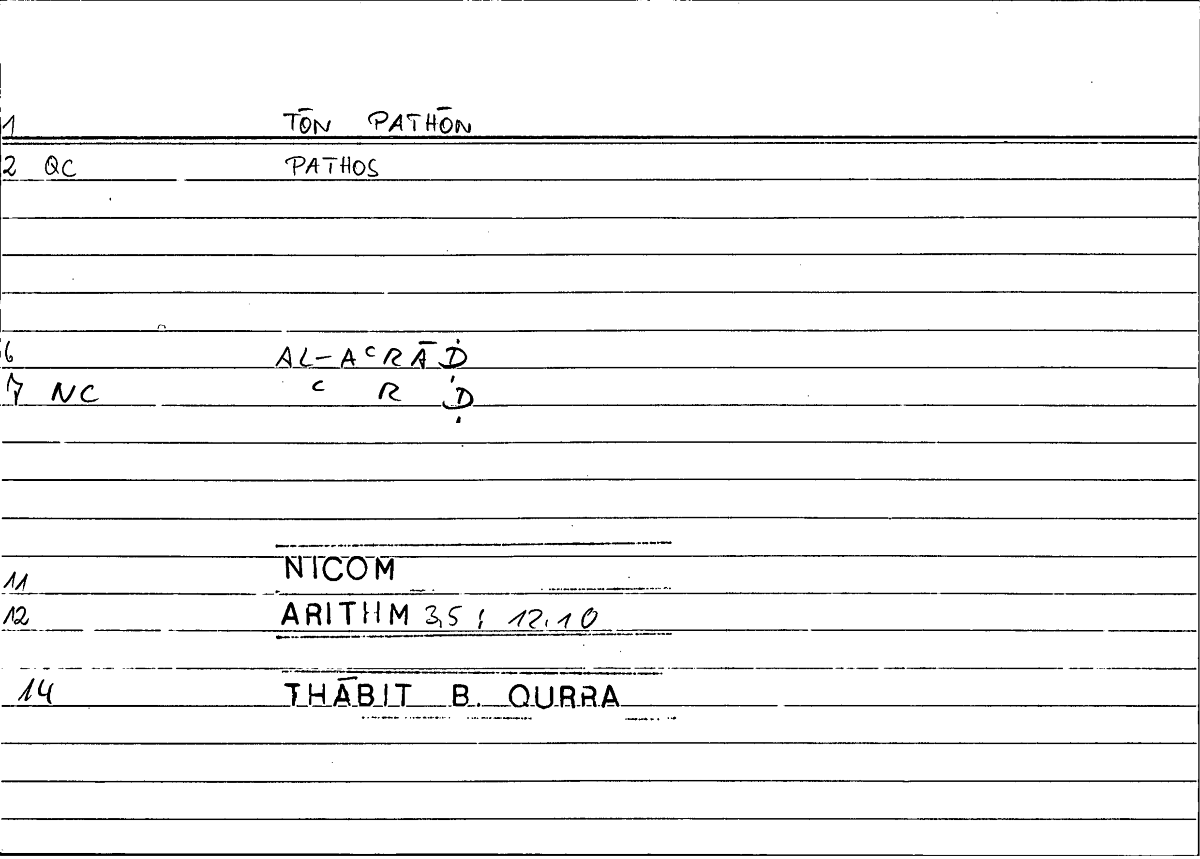 1 TŌN PATHŌN
2 QC PATHOS
6 AL-AᶜRĀḌ
7 NC ᶜ R Ḍ
11 NICOM
12 ARITHM 3,5 ; 12.10
14 THĀBIT B. QURRA